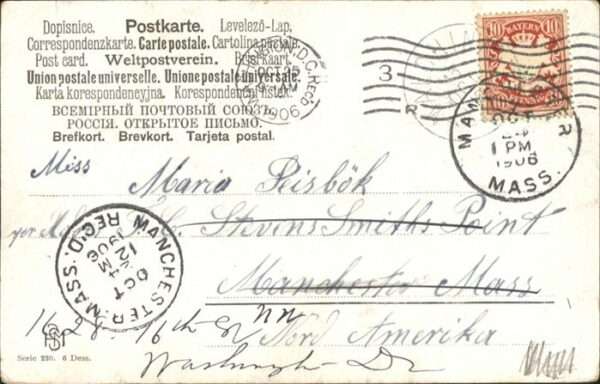 Dopisnice. Postkarte. Levelező-Lap.
Correspondenzkarte. Carte postale. Cartolina postale.
Post card. Weltpostverein. Briefkaart.
Union postale universelle. Unione postale universale.
Karta korespondencyjna. Korespondenční lístek.
ВСЕМІРНЫЙ ПОЧТОВЫЙ СОЮЗЪ
РОССІЯ. ОТКРЫТОЕ ПИСЬМО.
Brefkort. Brevkort. Tarjeta postal.
WASHINGTON, D.C. REC'D
OCT
AM
1906
3
R
10 BAYERN 10
PFENNIG
MANCHESTER
OCT
1 PM
1906
MASS.
Miss
Maria Reisbök
Stevens Smiths Point
Manchester Mass
Nord Amerika
1628 16th St NW
Washingt DC
MANCHESTER, MASS. REC'D.
OCT
12
M
1906
Serie 230. 6 Dess.